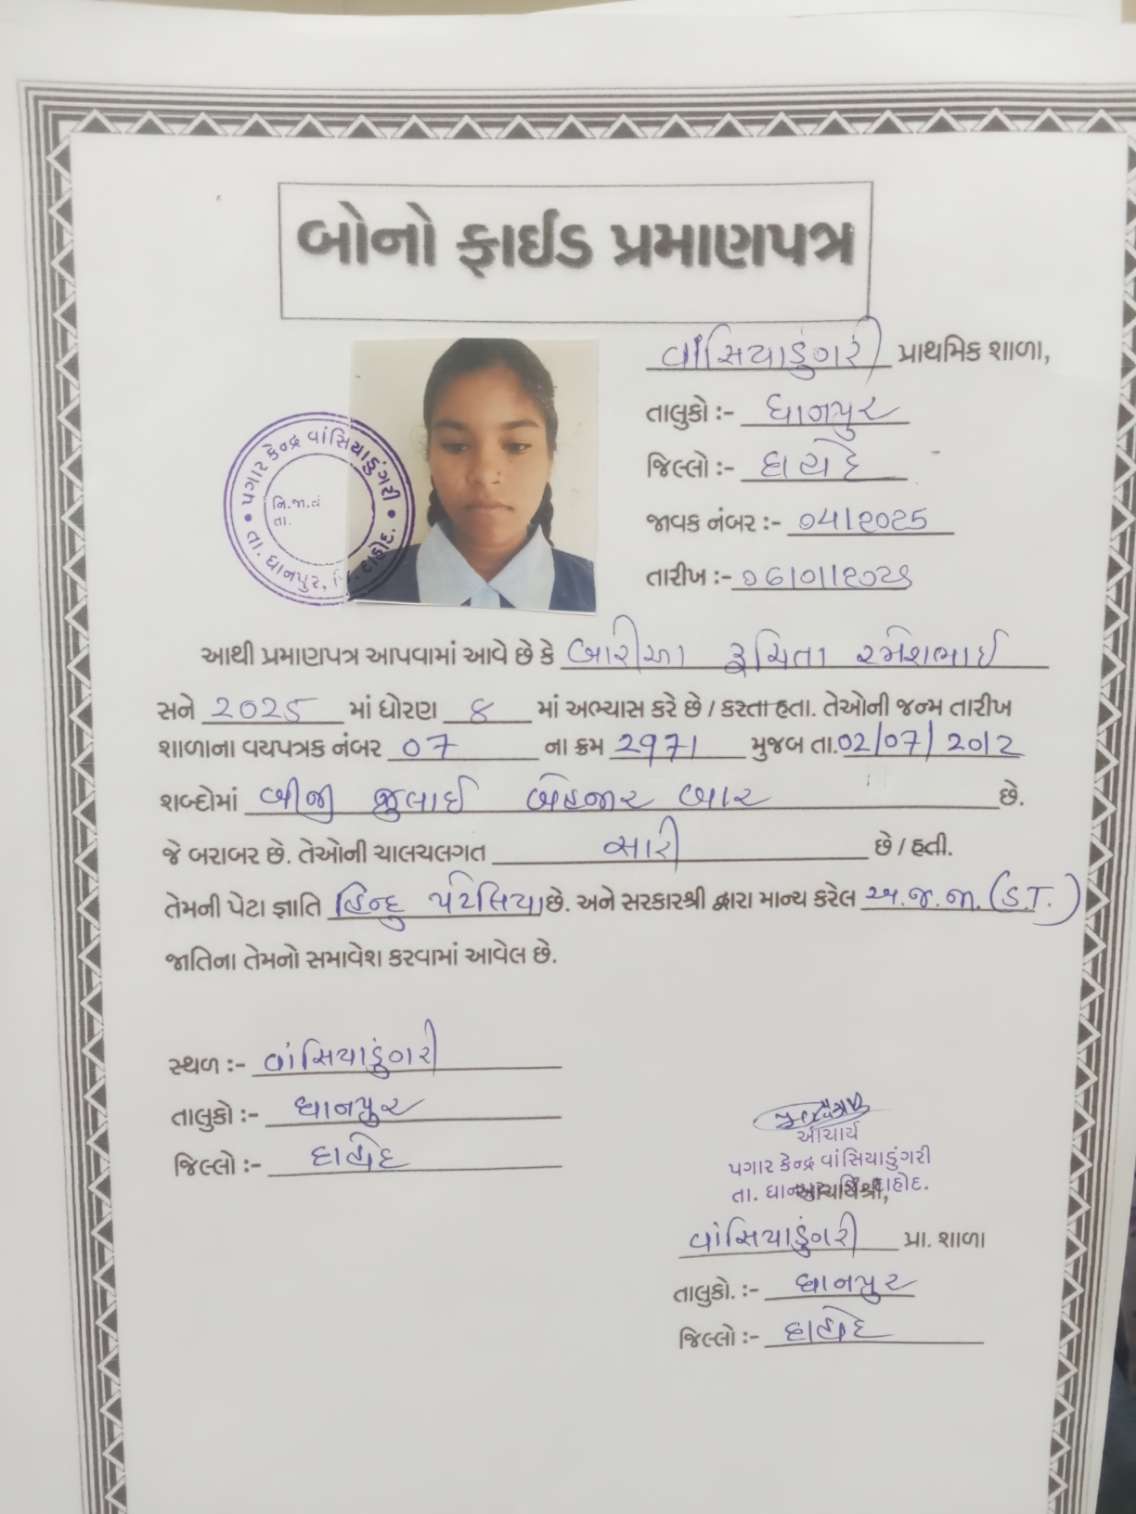 બોનો ફાઈડ પ્રમાણપત્ર
વાંસિયાડુંગરી પ્રાથમિક શાળા,
તાલુકો :- ધાનપુર
જિલ્લો :- દાહોદ
જાવક નંબર :- 04/2025
તારીખ :- 06/01/2025
પગાર કેન્દ્ર વાંસિયાડુંગરી
નિ.જા.નં
તા.
તા. ધાનપુર, જિ. દાહોદ.
આથી પ્રમાણપત્ર આપવામાં આવે છે કે બારીઆ રૂચિતા રમેશભાઈ
સને 2025 માં ધોરણ ૪ માં અભ્યાસ કરે છે / કરતા હતા. તેઓની જન્મ તારીખ
શાળાના વયપત્રક નંબર 07 ના ક્રમ 2971 મુજબ તા.02/07/2012
શબ્દોમાં બીજી જુલાઈ બેહજાર બાર છે.
જે બરાબર છે. તેઓની ચાલચલગત સારી છે / હતી.
તેમની પેટા જ્ઞાતિ હિન્દુ પટેલિયા છે. અને સરકારશ્રી દ્વારા માન્ય કરેલ અ.જ.જા. (S.T.)
જાતિના તેમનો સમાવેશ કરવામાં આવેલ છે.
સ્થળ :- વાંસિયાડુંગરી
તાલુકો :- ધાનપુર
જિલ્લો :- દાહોદ
આચાર્ય
પગાર કેન્દ્ર વાંસિયાડુંગરી
તા. ધાનપુર જિ. દાહોદ.
આચાર્યશ્રી,
વાંસિયાડુંગરી પ્રા. શાળા
તાલુકો. :- ધાનપુર
જિલ્લો :- દાહોદ